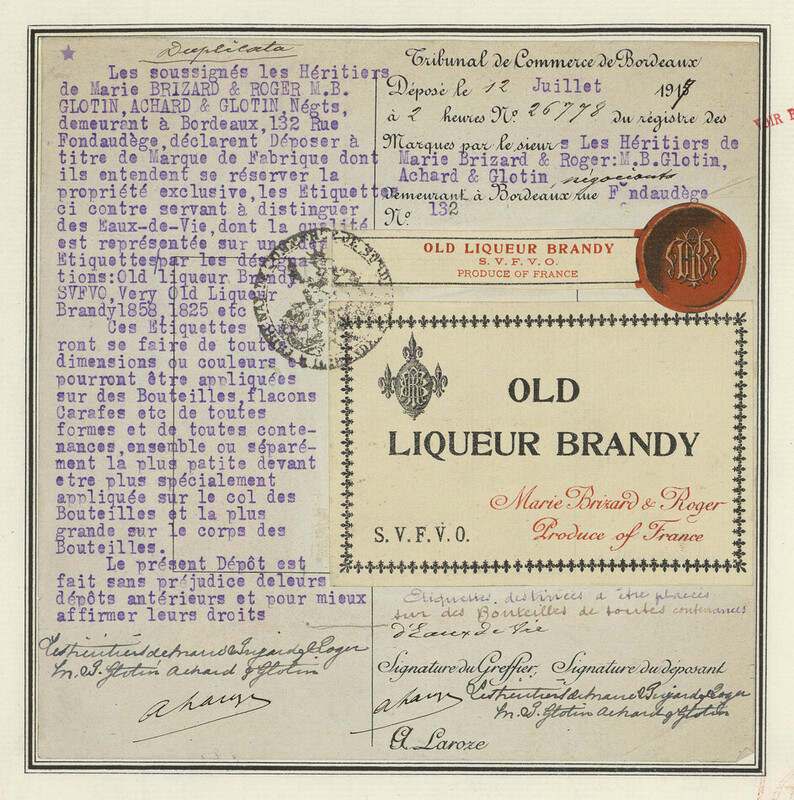 Duplicata
Les soussignés les Héritiers
de Marie BRIZARD & ROGER M.B.
GLOTIN, ACHARD & GLOTIN, Négts,
demeurant à Bordeaux, 132 Rue
Fondaudège, déclarent Déposer à
titre de Marque de Fabrique dont
ils entendent se réserver la
propriété exclusive, les Etiquettes
ci contre servant à distinguer
des Eaux-de-Vie, dont la qualité
est représentée sur une des
Etiquettes par les désigna-
tions: Old liqueur Brandy
SVFVO, Very Old Liqueur
Brandy 1858, 1825 etc
Ces Etiquettes
ront se faire de toute
dimensions ou couleurs et
pourront être appliquées
sur des Bouteilles, flacons
Carafes etc de toutes
formes et de toutes conte-
nances, ensemble ou séparé-
ment la plus patite devant
etre plus spécialement
appliquée sur le col des
Bouteilles et la plus
grande sur le corps des
Bouteilles.
Le présent Dépôt est
fait sans préjudice de leurs
dépôts antérieurs et pour mieux
affirmer leurs droits
Les héritiers de Marie Brizard & Roger
M. B. Glotin Achard & Glotin
Tribunal de Commerce de Bordeaux
Déposé le 12 Juillet 1917
à 2 heures No. 26778 du régistre des
Marques par le sieurs Les Héritiers de
Marie Brizard & Roger: M.B. Glotin,
Achard & Glotin, négociants
demeurant à Bordeaux rue Fondaudège
No. 132
VOIR
OLD LIQUEUR BRANDY
S. V. F. V. O.
PRODUCE OF FRANCE
OLD
LIQUEUR BRANDY
Marie Brizard & Roger
S. V. F. V. O. Produce of France
Etiquettes destinées à être placées
sur des Bouteilles de toutes contenances
d'Eaux de Vie
Signature du Greffier, Signature du déposant
Les héritiers de Marie Brizard & Roger
M. B. Glotin Achard & Glotin
A. Laroze